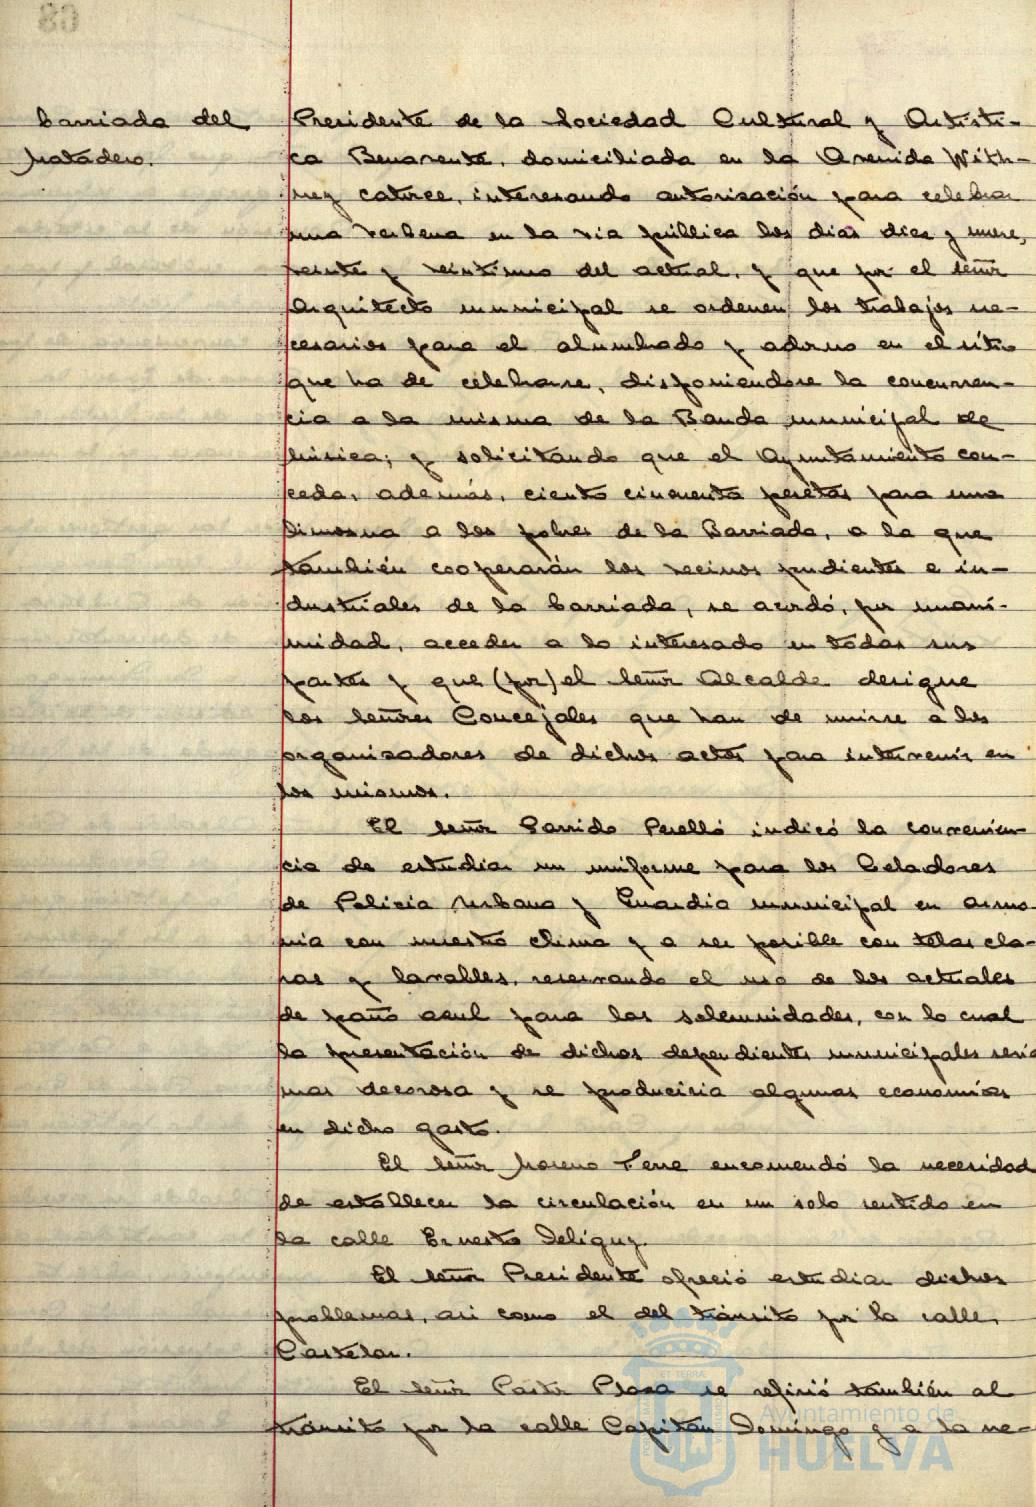 barriada del
Matadero.
Presidente de la Sociedad Cultural y Artísti-
ca Benavente, domiciliada en la Avenida With-
ney catorce, interesando autorización para celebrar
una verbena en la via pública los dias diez y nueve,
veinte y veintiuno del actual, y que por el señor
Arquitecto municipal se ordenen los trabajos ne-
cesarios para el alumbrado y adorno en el sitio
que ha de celebrarse, disponiendose la concurren-
cia a la misma de la Banda municipal de
Música; y solicitando que el Ayuntamiento con-
ceda, además, ciento cincuenta pesetas para una
limosna a los pobres de la Barriada, a la que
también cooperarán los vecinos pudientes e in-
dustriales de la barriada, se acordó, por unani-
midad, acceder a lo interesado en todas sus
partes y que (por) el señor Alcalde designe
los señores Concejales que han de unirse a los
organizadores de dichos actos para intervenir en
los mismos.
El señor Garrido Perelló indicó la convenien-
cia de estudiar un uniforme para los Celadores
de Policia Urbana y Guardia municipal en armo-
nia con nuestro clima y a ser posible con telas cla-
ras y lavables, reservando el uso de los actuales
de paño azul para las solemnidades, con lo cual
la presentación de dichos dependientes municipales seria
mas decorosa y se produciria algunas economias
en dicho gasto.
El señor Moreno encomendó la necesidad
de establecer la circulación en un solo sentido en
la calle Ernesto Deligny.
El señor Presidente ofreció estudiar dichos
problemas, asi como el del tránsito por la calle
Castelar.
El señor Pastor Plaza se refirió también al
tránsito por la calle Capitan Domingo y a la ne-
Ayuntamiento de
HUELVA